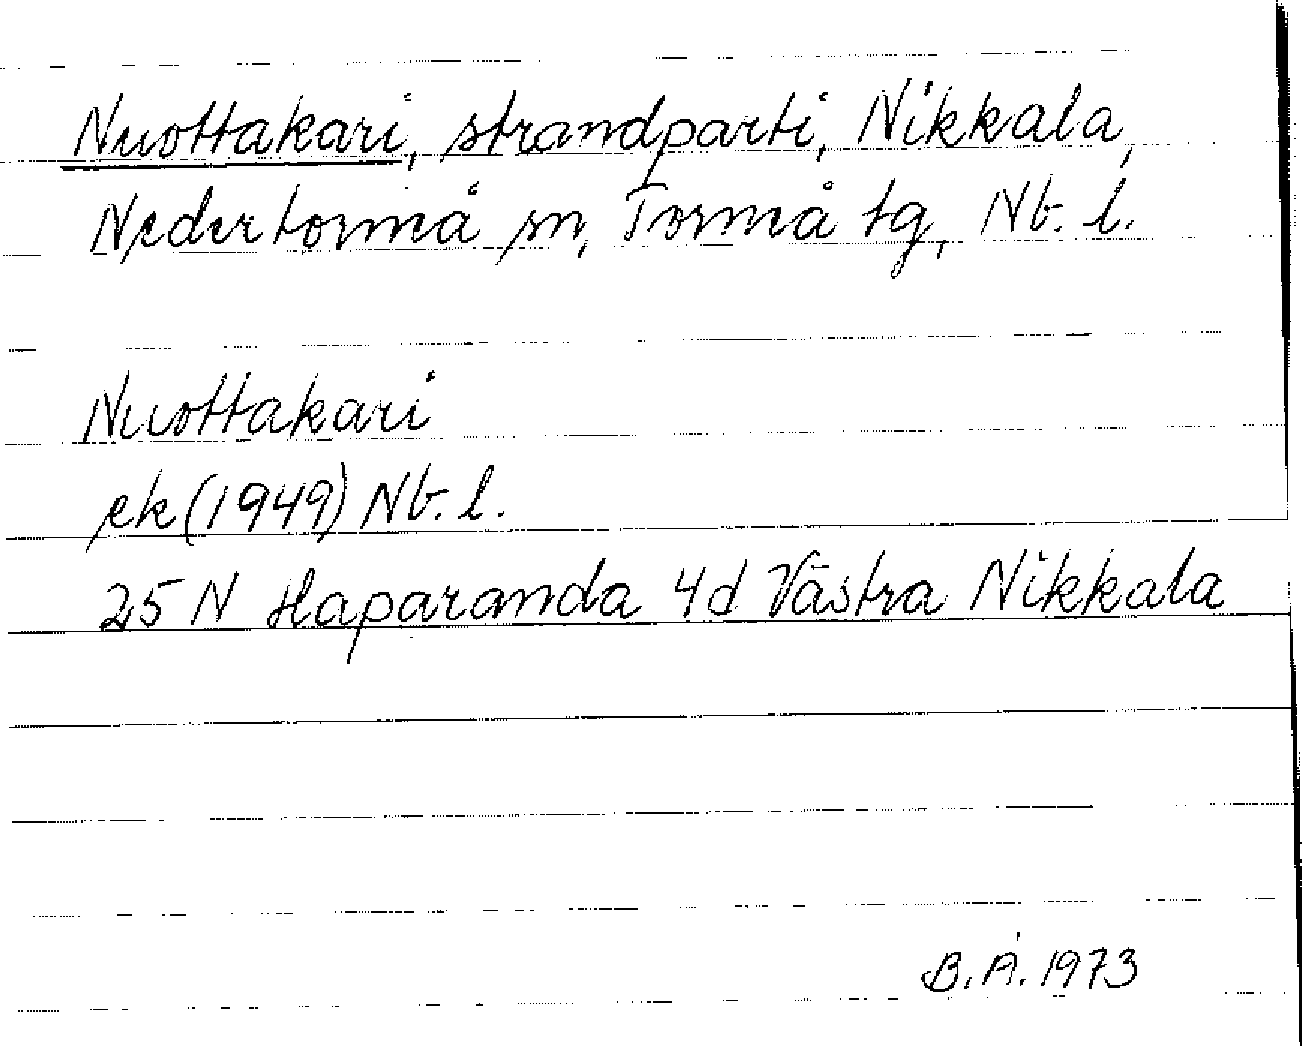 Nuottakari, strandparti, Nikkala,
Nedertorneå sn, Torneå tg, Nb. l.
Nuottakari
ek (1949) Nb. l.
25 N Haparanda 4d Västra Nikkala
B. Å. 1973